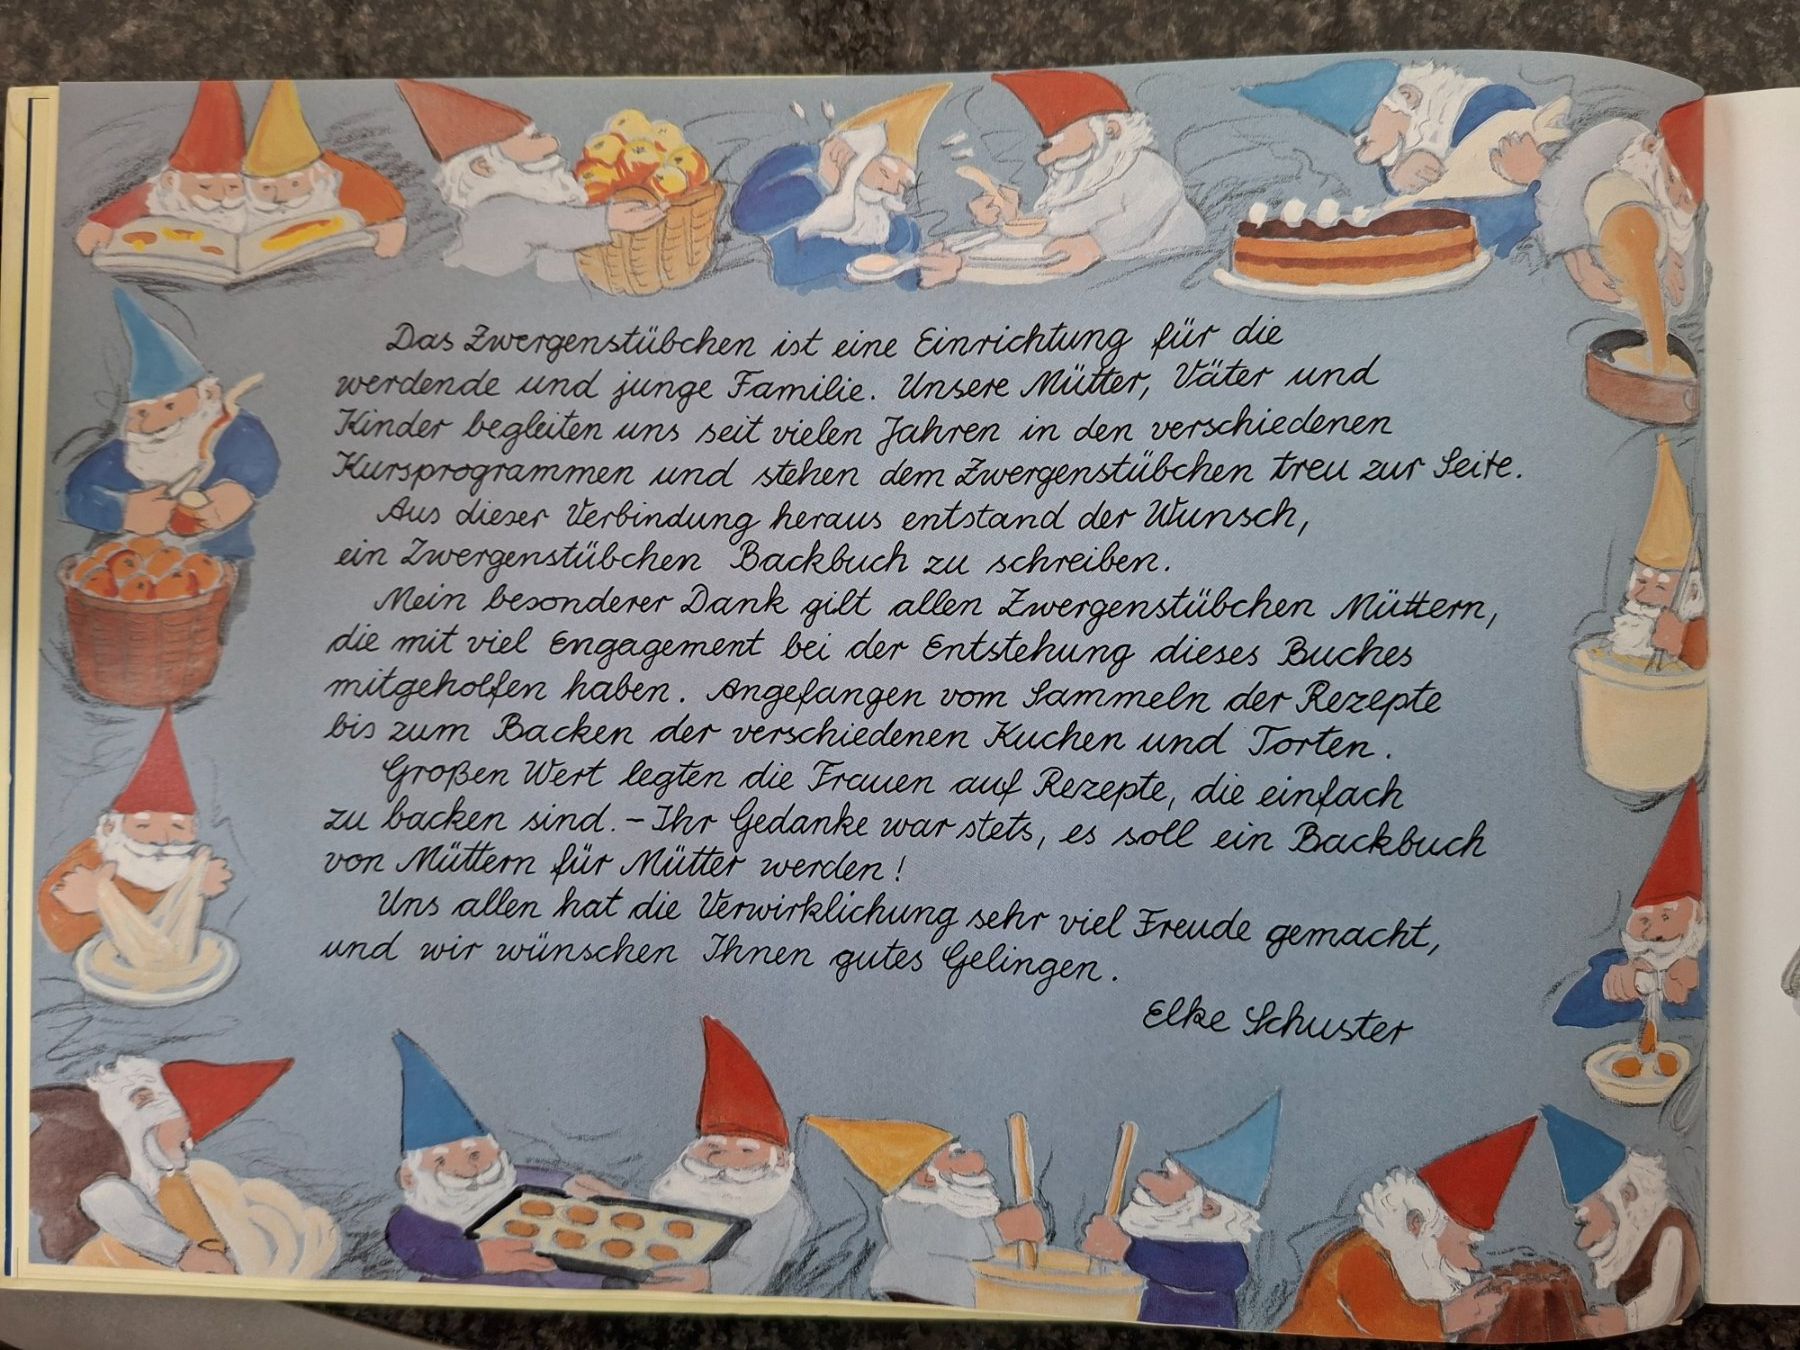 Das Zwergenstübchen ist eine Einrichtung für die
werdende und junge Familie. Unsere Mütter, Väter und
Kinder begleiten uns seit vielen Jahren in den verschiedenen
Kursprogrammen und stehen dem Zwergenstübchen treu zur Seite.
Aus dieser Verbindung heraus entstand der Wunsch,
ein Zwergenstübchen Backbuch zu schreiben.
Mein besonderer Dank gilt allen Zwergenstübchen Müttern,
die mit viel Engagement bei der Entstehung dieses Buches
mitgeholfen haben. Angefangen vom Sammeln der Rezepte
bis zum Backen der verschiedenen Kuchen und Torten.
Großen Wert legten die Frauen auf Rezepte, die einfach
zu backen sind. – Ihr Gedanke war stets, es soll ein Backbuch
von Müttern für Mütter werden!
Uns allen hat die Verwirklichung sehr viel Freude gemacht,
und wir wünschen Ihnen gutes Gelingen.
Elke Schuster